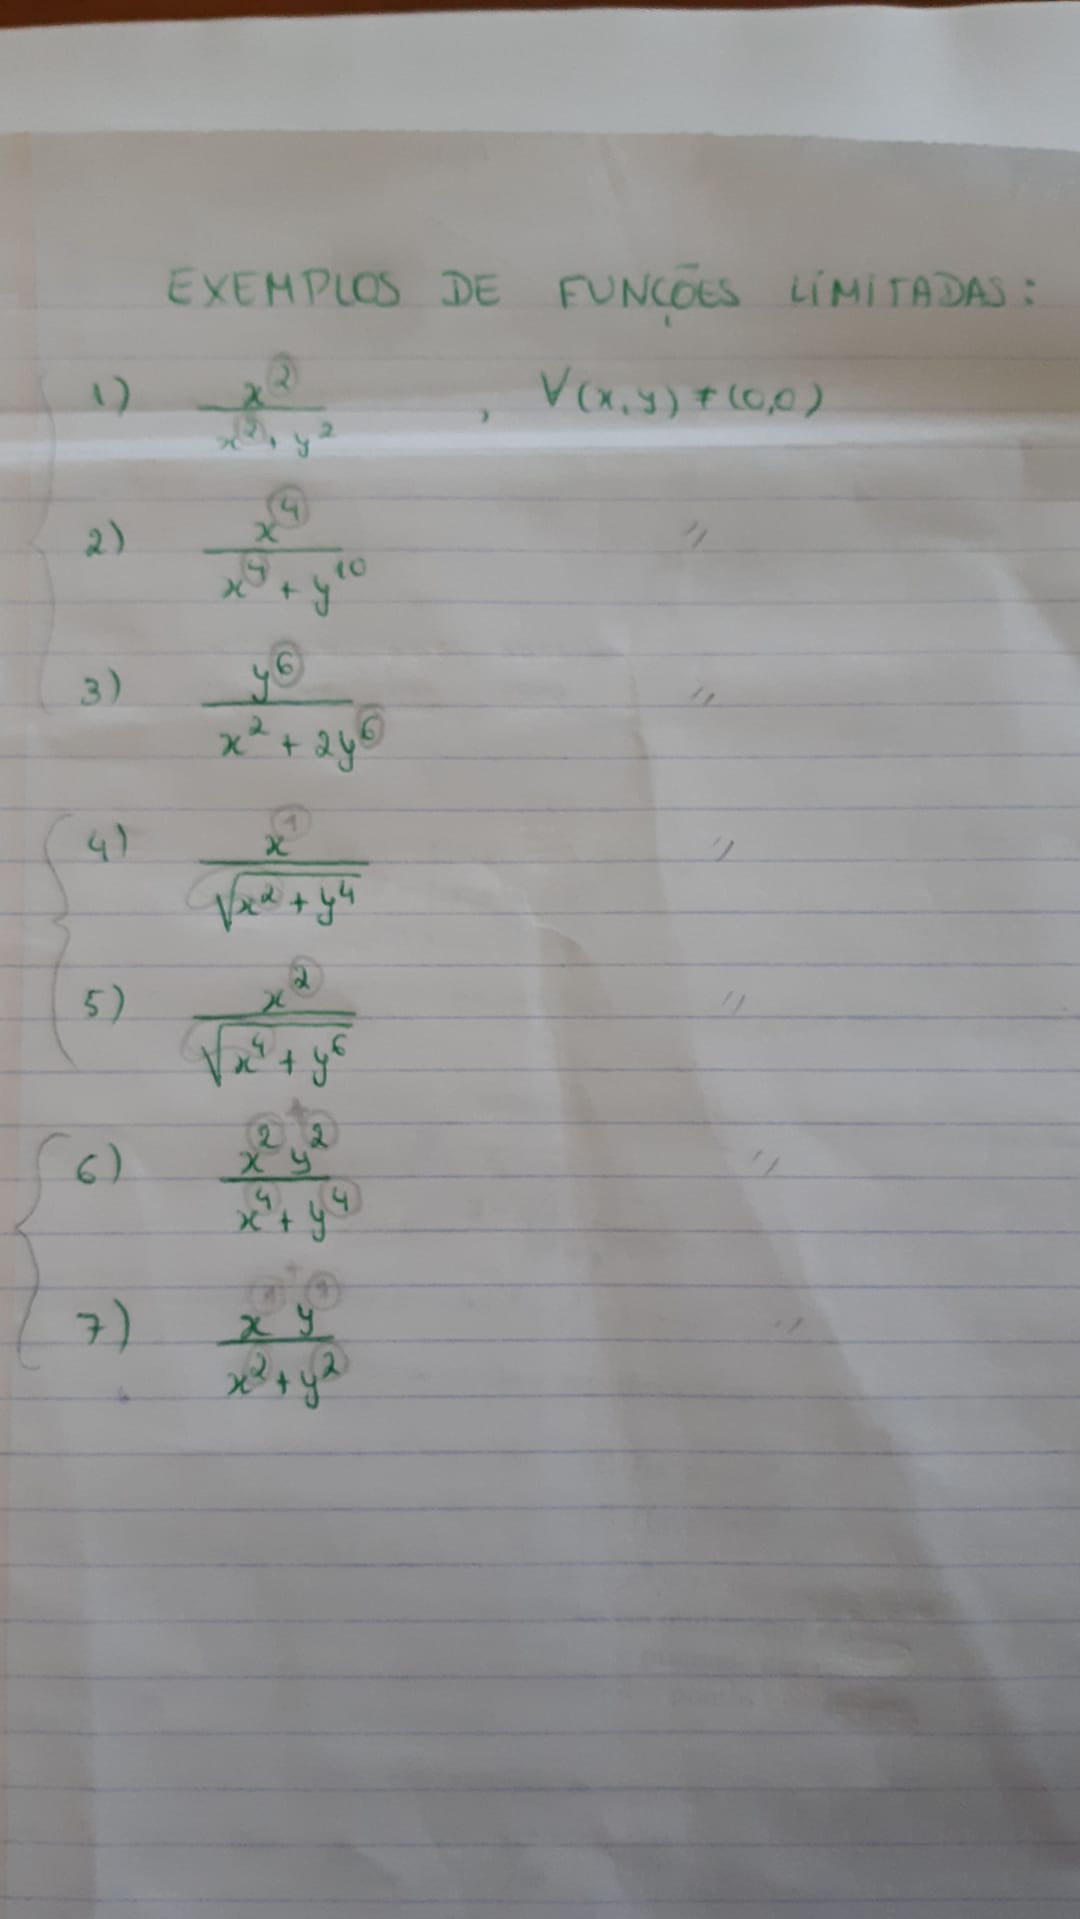 EXEMPLOS DE FUNÇÕES LIMITADAS:
1) x^2 / (x^2 + y^2) , ∀(x,y) ≠ (0,0)
2) x^4 / (x^4 + y^10) "
3) y^6 / (x^2 + 2y^6) "
4) x^1 / √(x^2 + y^4) "
5) x^2 / √(x^4 + y^6) "
6) x^2 + y^2 / (x^4 + y^4) "
7) x^1 + y^1 / (x^2 + y^2) "